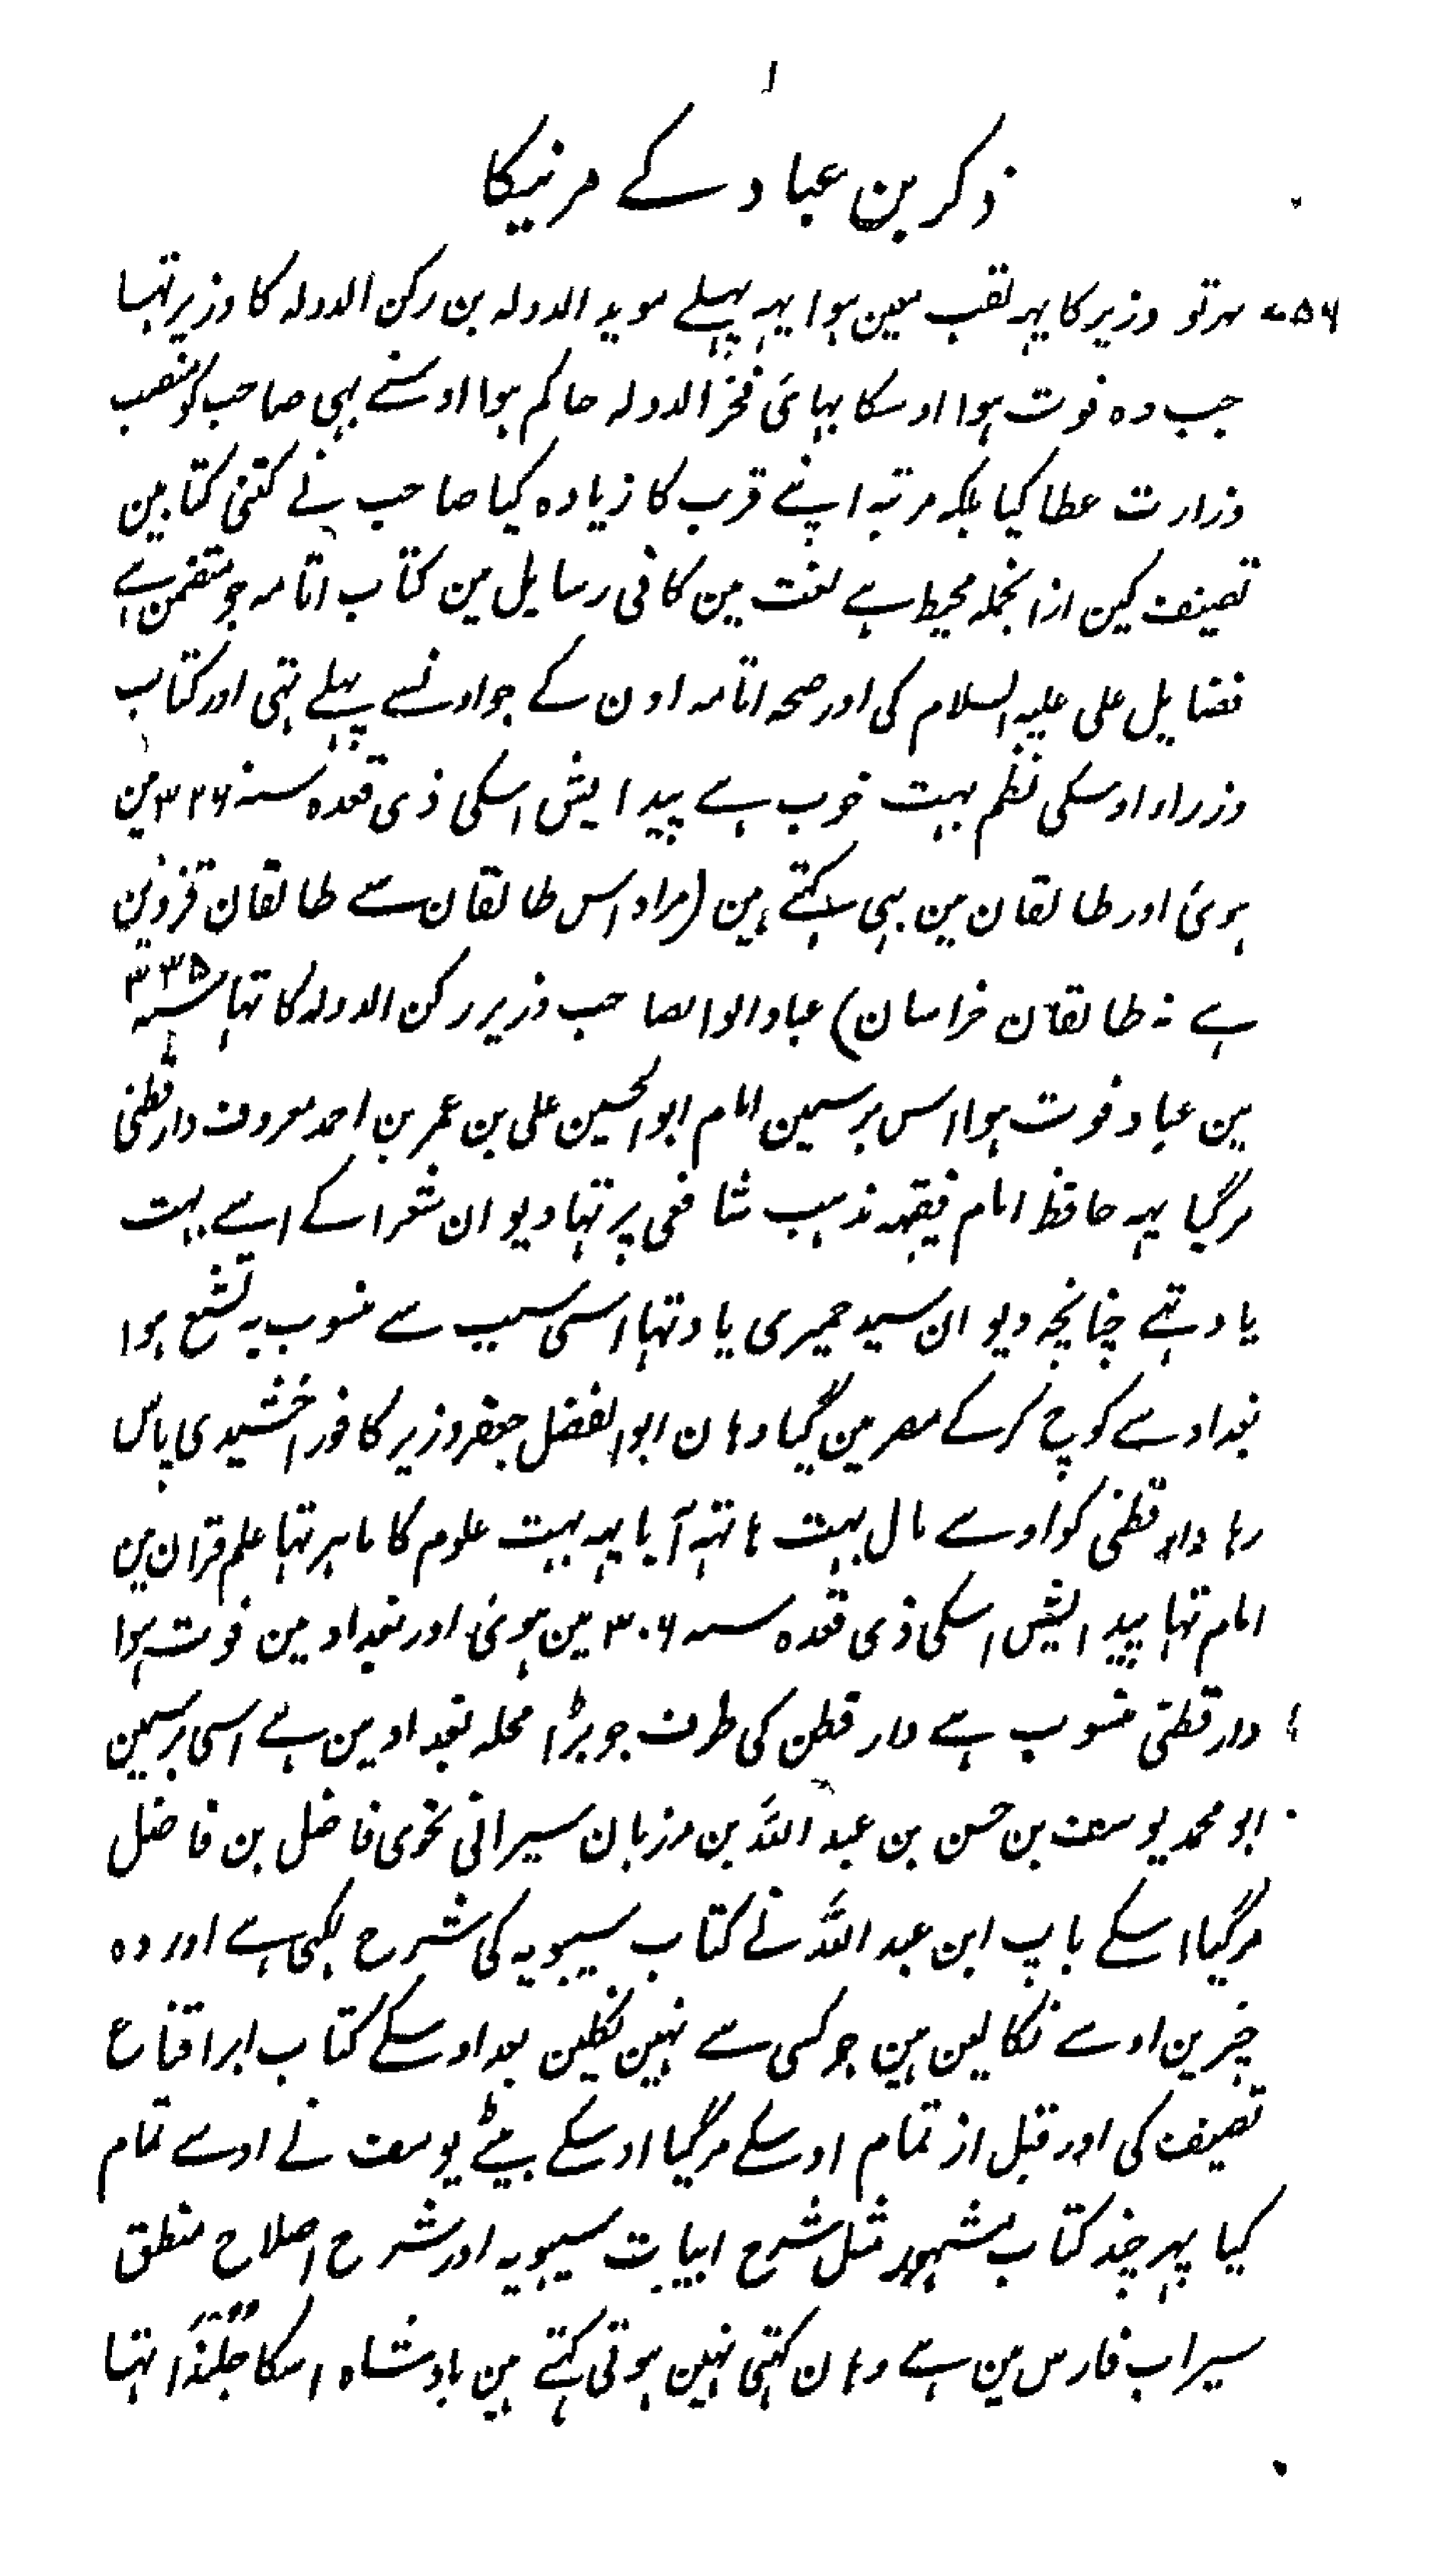 ۱
ذکر بن عباد کے مرنیکا
ہرتو وزیر کا یہہ لقب معین ہوا یہہ پہلے موید الدولہ بن رکن الدولہ کا وزیر تہا
جب وہ فوت ہوا اوسکا بہائی فخر الدولہ حاکم ہوا اوسنے بہی صاحب کو منصب
وزارت عطا کیا بلکہ مرتبہ اپنے قرب کا زیادہ کیا صاحب نے کتنی کتابین
تصنیف کین ازانجملہ محیط ہے لغت مین کافی رسایل مین کتاب امامہ جو متضمن ہے
فضایل علی علیہ السلام کی اور صحہ امامہ اون کے جو اونسے پہلے تہی اور کتاب
وزرا اور اوسکی نظم بہت خوب ہے پیدایش اسکی ذی قعدہ سنہ ۳۲۶ مین
ہوئی اور طالقان مین بہی کہتے ہین (مراد اس طالقان سے طالقان قزوین
ہے نہ طالقان خراسان) عباد ابو الصاحب وزیر رکن الدولہ کا تہا سنہ ۳۳۵
مین عباد فوت ہوا اس برسمین امام ابو الحسین علی بن عمر بن احمد معروف دارقطنی
مرگیا یہہ حافظ امام فقیہہ مذہب شافعی پر تہا دیوان شعرا کے اسے بہت
یاد تہے چنانچہ دیوان سید حمیری یاد تہا اسی سبب سے منسوب بہ تشیع ہوا
بغداد سے کوچ کرکے مصر مین گیا وہان ابو الفضل جعفر وزیر کافور اخشیدی پاس
رہا دارقطنی کو اوسے مال بہت ہاتہہ آیا یہہ بہت علوم کا ماہر تہا علم قران مین
امام تہا پیدایش اسکی ذی قعدہ سنہ ۳۰۶ مین ہوئی اور بغداد مین فوت ہوا
دارقطنی منسوب ہے دار قطن کی طرف جو بڑا محلہ بغداد مین ہے اسی برسمین
ابو محمد یوسف بن حسن بن عبد اللہ بن مرزبان سیرافی نحوی فاضل بن فاضل
مرگیا اسکے باپ ابن عبد اللہ نے کتاب سیبویہ کی شرح لکہی ہے اور وہ
چیزین اوسے نکالین ہین جو کسی سے نہین نکلین بعد اوسکے کتاب اقناع
تصنیف کی اور قبل از تمام اوسکے مرگیا اوسکے بیٹے یوسف نے اوسے تمام
کیا پہر چند کتاب مشہور مثل شرح ابیات سیبویہ اور شرح اصلاح منطق
سیراب فارس مین ہے وہان کہتی نہین ہوتی کہتے ہین بادشاہ اسکا جلندا تہا